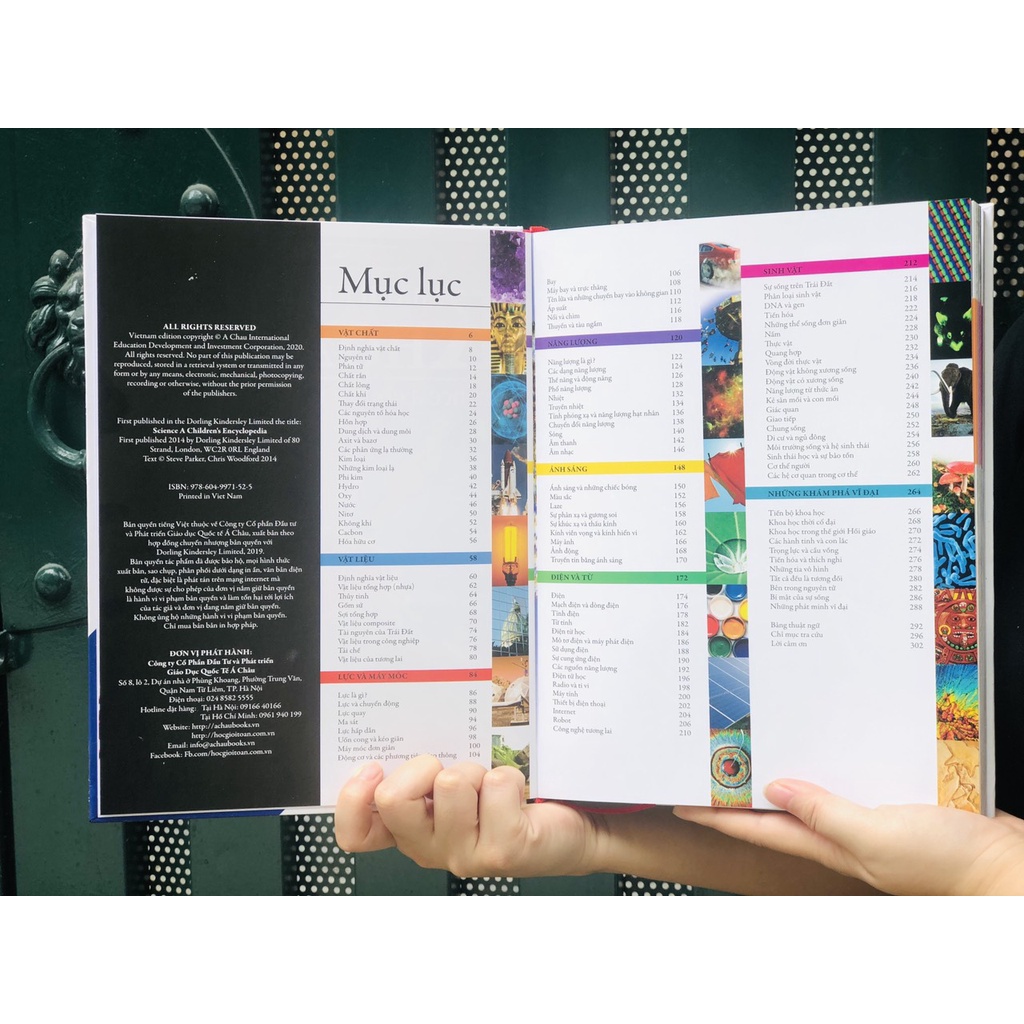 ALL RIGHTS RESERVED
Vietnam edition copyright © A Chau International
Education Development and Investment Corporation, 2020.
All rights reserved. No part of this publication may be
reproduced, stored in a retrieval system or transmitted in any
form or by any means, electronic, mechanical, photocopying,
recording or otherwise, without the prior permission
of the publishers.
First published in the Dorling Kindersley Limited the title:
Science A Children's Encyclopedia
First published 2014 by Dorling Kindersley Limited of 80
Strand, London, WC2R 0RL England
Text © Steve Parker, Chris Woodford 2014
ISBN: 978-604-9971-52-5
Printed in Viet Nam
Bản quyền tiếng Việt thuộc về Công ty Cổ phần Đầu tư
và Phát triển Giáo dục Quốc tế Á Châu, xuất bản theo
hợp đồng chuyển nhượng bản quyền với
Dorling Kindersley Limited, 2019.
Bản quyền tác phẩm đã được bảo hộ, mọi hình thức
xuất bản, sao chụp, phân phối dưới dạng in ấn, văn bản điện
tử, đặc biệt là phát tán trên mạng internet mà
không được sự cho phép của đơn vị nắm giữ bản quyền
là hành vi vi phạm bản quyền và làm tổn hại tới lợi ích
của tác giả và đơn vị đang nắm giữ bản quyền.
Không ủng hộ những hành vi vi phạm bản quyền.
Chỉ mua bán bản in hợp pháp.
ĐƠN VỊ PHÁT HÀNH:
Công ty Cổ Phần Đầu Tư và Phát triển
Giáo Dục Quốc Tế Á Châu
Số 8, lô 2, Dự án nhà ở Phùng Khoang, Phường Trung Văn,
Quận Nam Từ Liêm, TP. Hà Nội
Điện thoại: 024 8582 5555
Hotline đặt hàng: Tại Hà Nội: 09166 40166
Tại Hồ Chí Minh: 0961 940 199
Website: http://achaubooks.vn
http://hocgioitoan.com.vn
Email: info@achaubooks.vn
Facebook: Fb.com/hocgioitoan.com.vn
Mục lục
VẬT CHẤT 6
Định nghĩa vật chất 8
Nguyên tử 10
Phân tử 12
Chất rắn 14
Chất lỏng 18
Chất khí 20
Thay đổi trạng thái 22
Các nguyên tố hóa học 24
Hỗn hợp 26
Dung dịch và dung môi 28
Axit và bazơ 30
Các phản ứng lạ thường 32
Kim loại 36
Những kim loại lạ 38
Phi kim 40
Hydro 42
Oxy 44
Nước 46
Nitơ 50
Không khí 52
Cacbon 54
Hóa hữu cơ 56
VẬT LIỆU 58
Định nghĩa vật liệu 60
Vật liệu tổng hợp (nhựa) 62
Thủy tinh 64
Gốm sứ 66
Sợi tổng hợp 68
Vật liệu composite 70
Tài nguyên của Trái Đất 74
Vật liệu trong công nghiệp 76
Tái chế 78
Vật liệu của tương lai 80
LỰC VÀ MÁY MÓC 84
Lực là gì? 86
Lực và chuyển động 88
Lực quay 90
Ma sát 94
Lực hấp dẫn 96
Uốn cong và kéo giãn 98
Máy móc đơn giản 100
Động cơ và các phương thông 104
Bay 106
Máy bay và trực thăng 108
Tên lửa và những chuyến bay vào không gian 110
Áp suất 112
Nổi và chìm 116
Thuyền và tàu ngầm 118
NĂNG LƯỢNG 120
Năng lượng là gì? 122
Các dạng năng lượng 124
Thế năng và động năng 126
Phổ năng lượng 128
Nhiệt 132
Truyền nhiệt 134
Tính phóng xạ và năng lượng hạt nhân 136
Chuyển đổi năng lượng 138
Sóng 140
Âm thanh 142
Âm nhạc 146
ÁNH SÁNG 148
Ánh sáng và những chiếc bóng 150
Màu sắc 152
Laze 156
Sự phản xạ và gương soi 158
Sự khúc xạ và thấu kính 160
Kính viễn vọng và kính hiển vi 162
Máy ảnh 166
Ảnh động 168
Truyền tin bằng ánh sáng 170
ĐIỆN VÀ TỪ 172
Điện 174
Mạch điện và dòng điện 176
Tĩnh điện 178
Từ tính 182
Điện từ học 184
Mô tơ điện và máy phát điện 186
Sử dụng điện 188
Sự cung ứng điện 190
Các nguồn năng lượng 192
Điện tử học 196
Radio và ti vi 198
Máy tính 200
Thiết bị điện thoại 202
Internet 204
Robot 206
Công nghệ tương lai 210
SINH VẬT 212
Sự sống trên Trái Đất 214
Phân loại sinh vật 216
DNA và gen 218
Tiến hóa 222
Những thể sống đơn giản 224
Nấm 228
Thực vật 230
Quang hợp 232
Vòng đời thực vật 234
Động vật không xương sống 236
Động vật có xương sống 240
Năng lượng từ thức ăn 242
Kẻ săn mồi và con mồi 244
Giác quan 248
Giao tiếp 250
Chung sống 252
Di cư và ngủ đông 254
Môi trường sống và hệ sinh thái 256
Sinh thái học và sự bảo tồn 258
Cơ thể người 260
Các hệ cơ quan trong cơ thể 262
NHỮNG KHÁM PHÁ VĨ ĐẠI 264
Tiến bộ khoa học 266
Khoa học thời cổ đại 268
Khoa học trong thế giới Hồi giáo 270
Các hành tinh và con lắc 272
Trọng lực và cầu vồng 274
Tiến hóa và thích nghi 276
Những tia vô hình 278
Tất cả đều là tương đối 280
Bên trong nguyên tử 282
Bí mật của sự sống 286
Những phát minh vĩ đại 288
Bảng thuật ngữ 292
Chỉ mục tra cứu 296
Lời cảm ơn 302